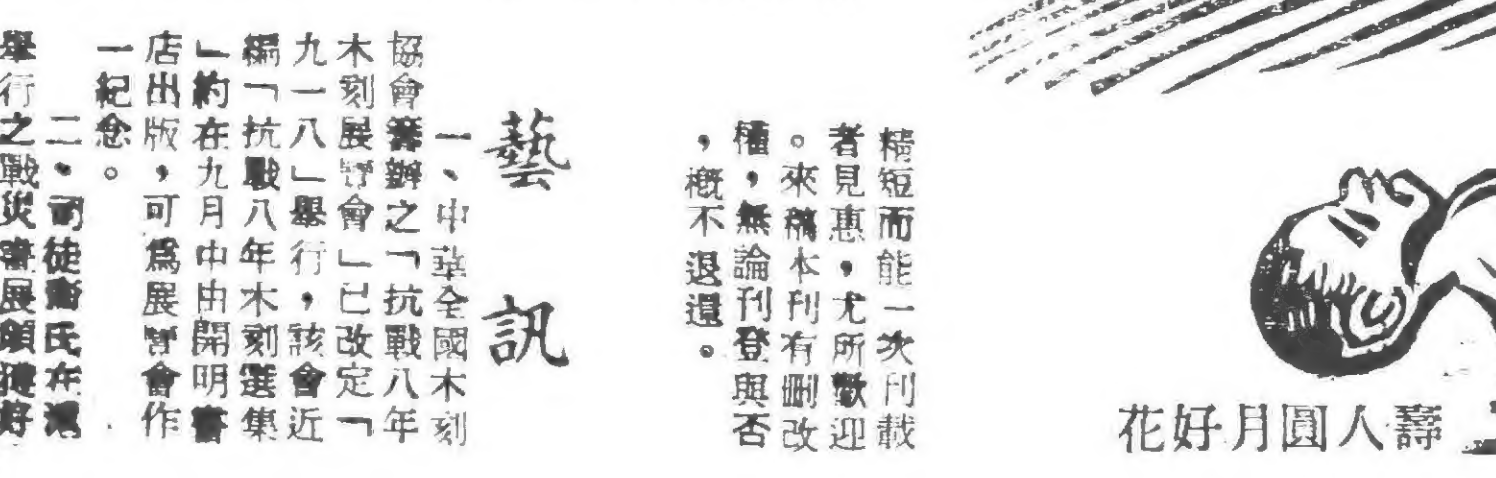 花好月圓人壽
精短而能一次刊載
者見惠，尤所歡迎
。來稿本刊有刪改
權，無論刊登與否
，概不退還。
藝訊
一、中華全國木刻
協會籌辦之「抗戰八年
木刻展覽會」已改定「
九一八」舉行，該會近
編「抗戰八年木刻選集
」約在九月中由開明書
店出版，可爲展覽會作
一紀念。
二、司徒喬氏在滬
舉行之戰災畫展頗獲好